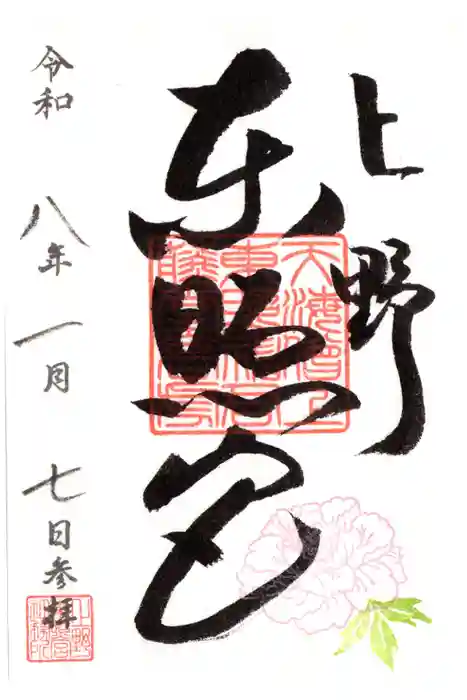 上野
東照宮
令和八年一月七日参拝